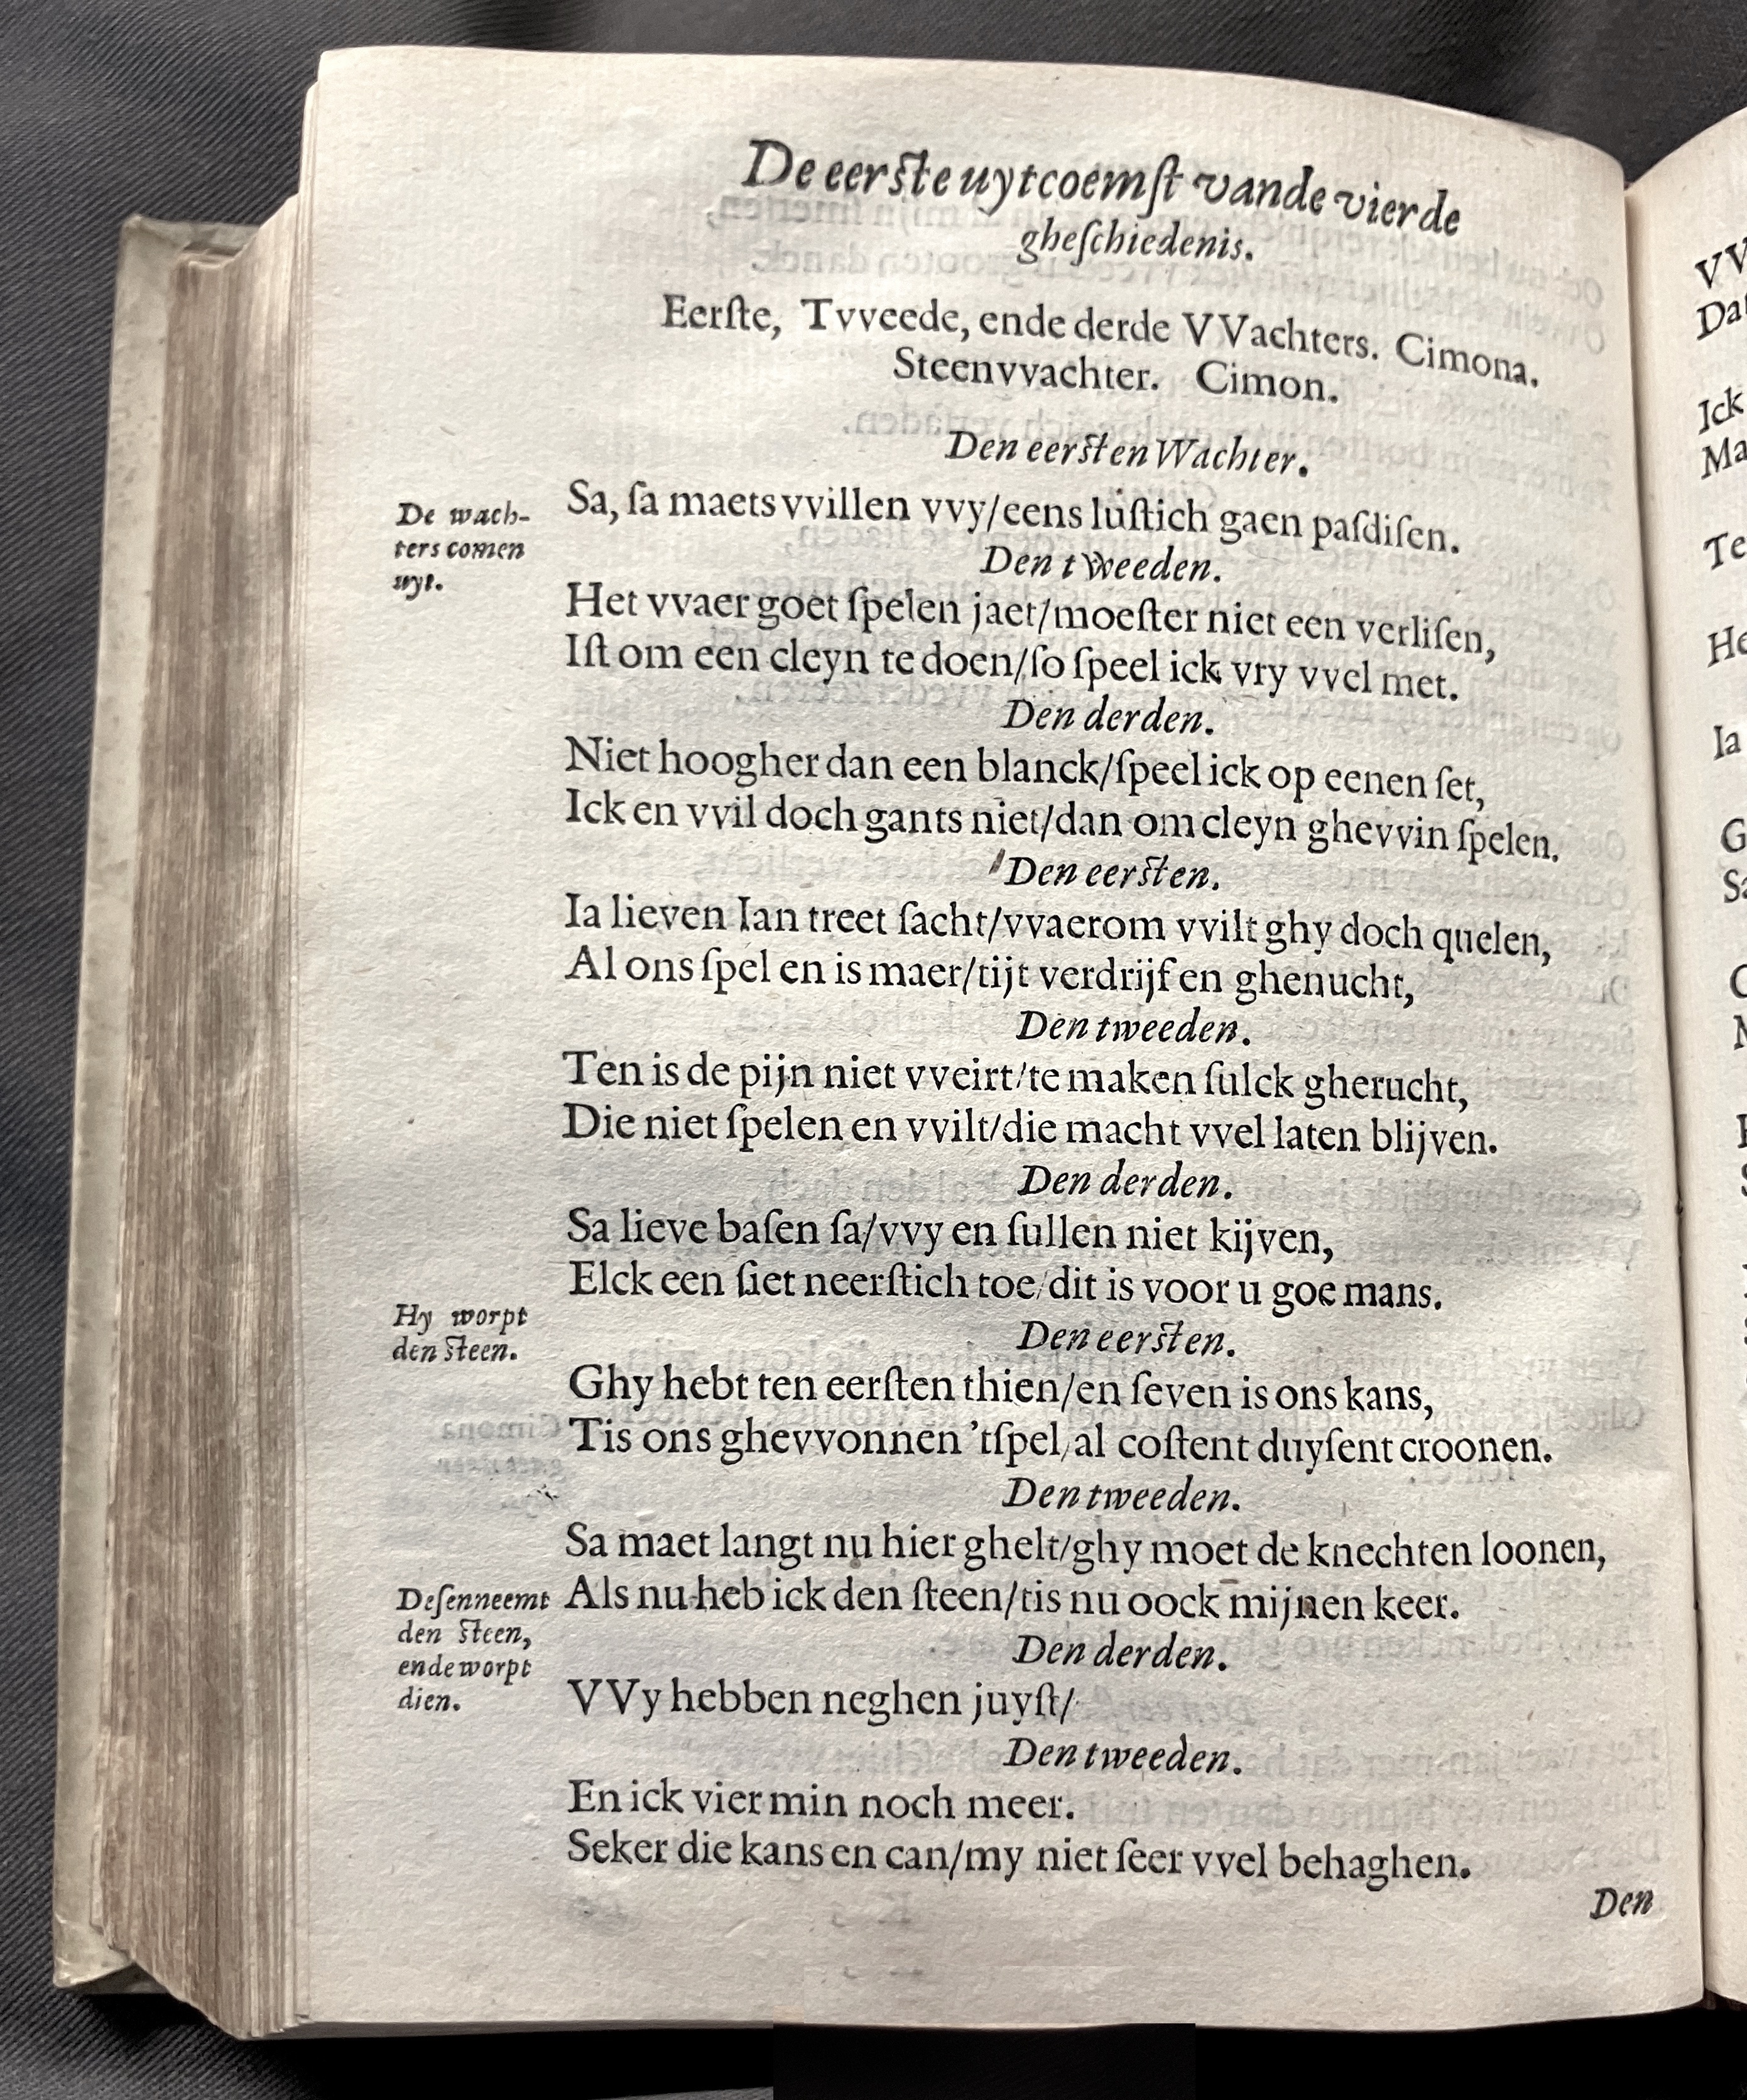 De eerſte uytcoemſt vande vierde
gheſchiedenis.
Eerſte, Tvveede, ende derde VVachters. Cimona.
Steenvvachter. Cimon.
Den eerſten Wachter.
De wach-
ters comen
uyt.
Sa, ſa maets vvillen vvy/eens luſtich gaen paſdiſen.
Den tweeden.
Het vvaer goet ſpelen jaet/moeſter niet een verliſen,
Iſt om een cleyn te doen/ſo ſpeel ick vry vvel met.
Den derden.
Niet hoogher dan een blanck/ſpeel ick op eenen ſet,
Ick en vvil doch gants niet/dan om cleyn ghevvin ſpelen.
Den eerſten.
Ia lieven Ian treet ſacht/vvaerom vvilt ghy doch quelen,
Al ons ſpel en is maer/tijt verdrijf en ghenucht,
Den tweeden.
Ten is de pijn niet vveirt/te maken ſulck gherucht,
Die niet ſpelen en vvilt/die macht vvel laten blijven.
Den derden.
Sa lieve baſen ſa/vvy en ſullen niet kijven,
Elck een ſiet neerſtich toe/dit is voor u goe mans.
Hy worpt
den ſteen.
Den eerſten.
Ghy hebt ten eerſten thien/en ſeven is ons kans,
Tis ons ghevvonnen 'tſpel/al coſtent duyſent croonen.
Den tweeden.
Sa maet langt nu hier ghelt/ghy moet de knechten loonen,
Als nu heb ick den ſteen/tis nu oock mijnen keer.
Deſen neemt
den ſteen,
ende worpt
dien.
Den derden.
VVy hebben neghen juyſt/
Den tweeden.
En ick vier min noch meer.
Seker die kans en can/my niet ſeer vvel behaghen.
Den
VV
Dat
Ick
Ma
Te
He
Ia
G
Sa